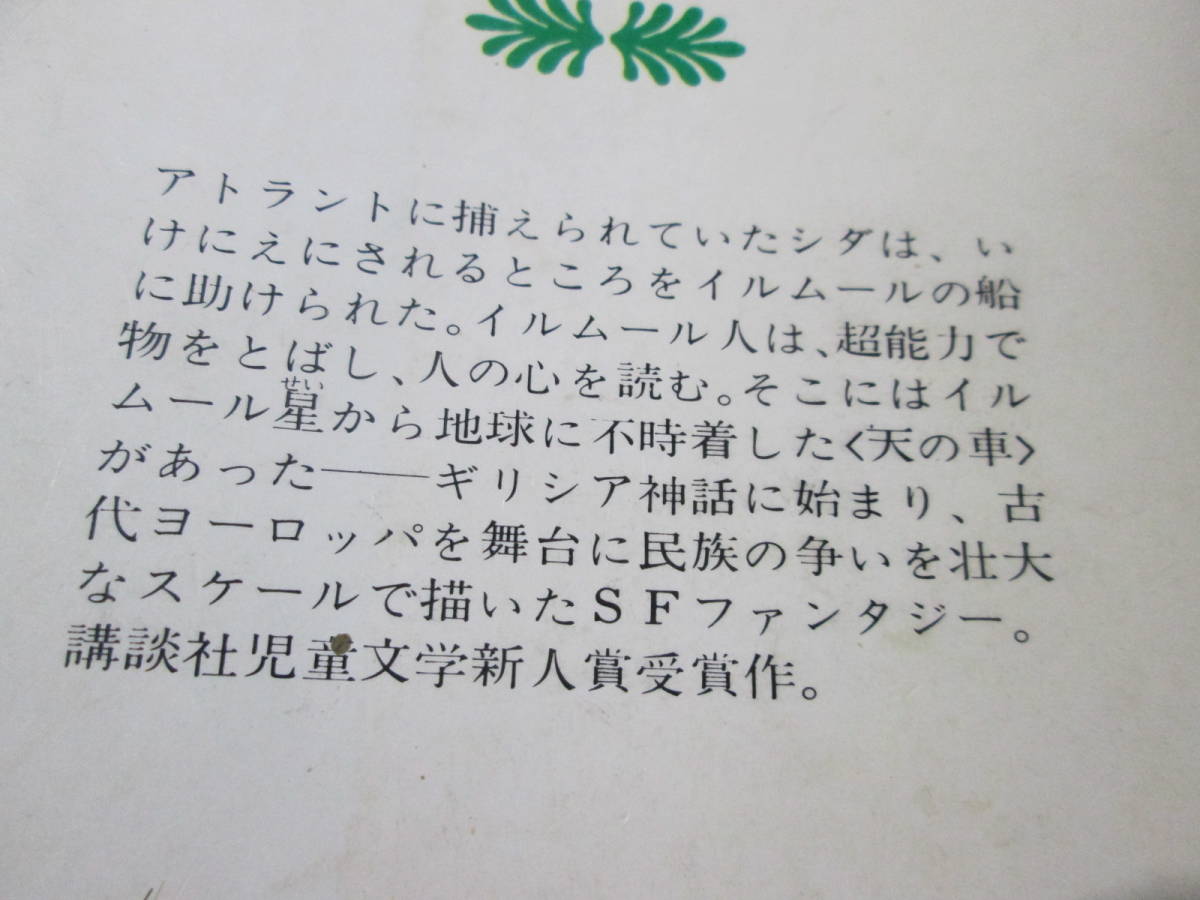 アトラントに捕えられていたシダは、い
けにえにされるところをイルムールの船
に助けられた。イルムール人は、超能力で
物をとばし、人の心を読む。そこにはイル
せい
ムール星から地球に不時着した〈天の車〉
があった——ギリシア神話に始まり、古
代ヨーロッパを舞台に民族の争いを壮大
なスケールで描いたＳＦファンタジー。
講談社児童文学新人賞受賞作。